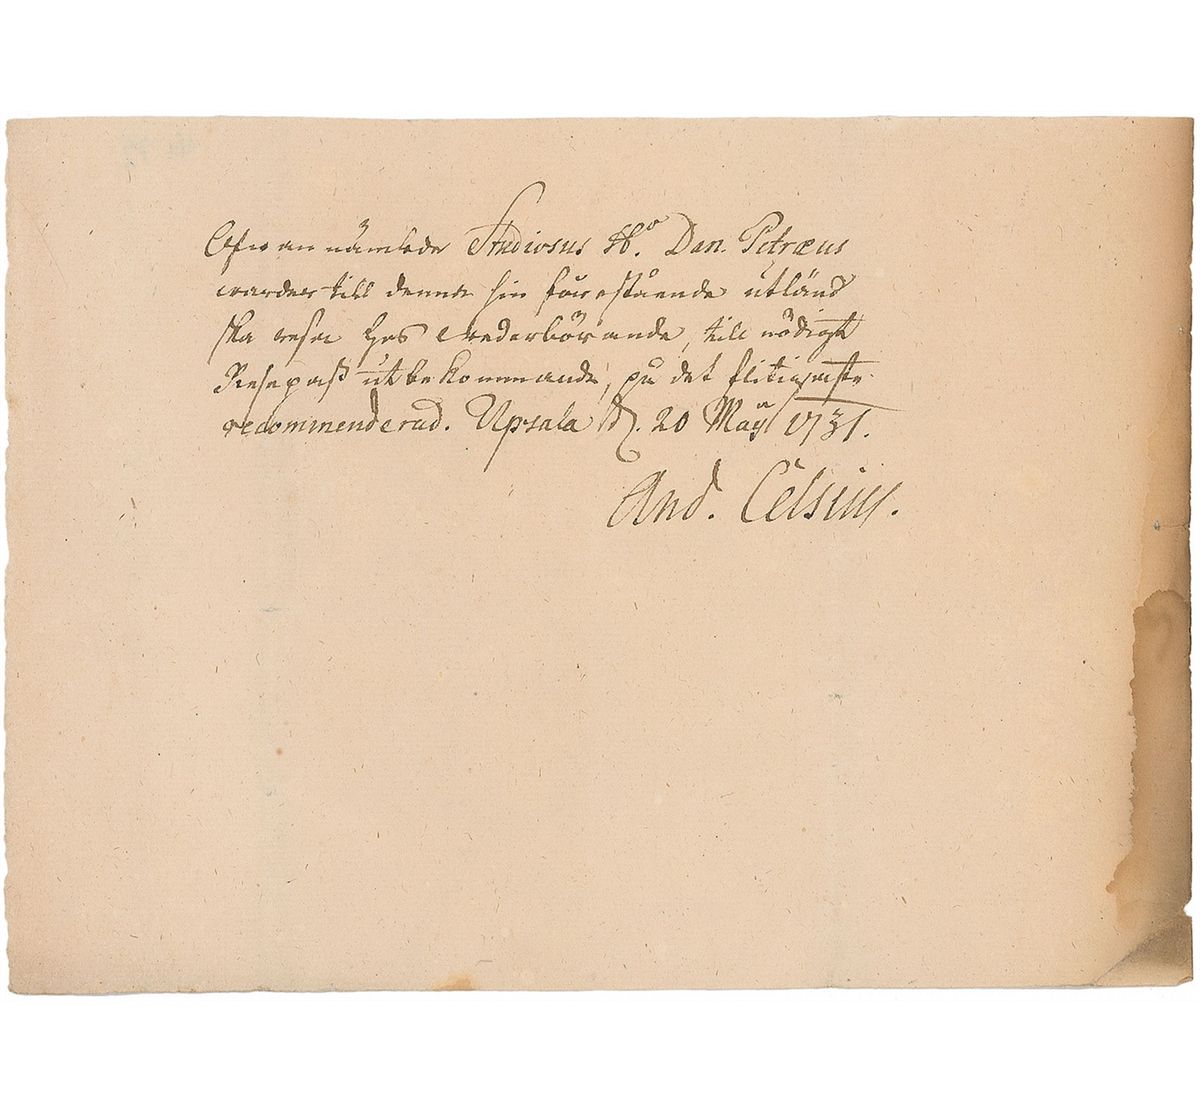 Ofwannämbde Studiosus H:r Dan. Petræus
warder till denna sin förestående utländ
ska resa hos wederbörande, till nödigt
Resepass utbekommande, på det flitigaste
recommenderad. Upsala d. 20 Maij 1731.
And. Celsius.